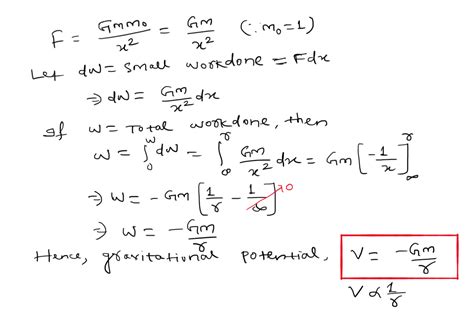 F = Gmm₀/x² = Gm/x² (∵ m₀=1)
Let dW = small workdone = Fdx
⇒ dW = Gm/x² dx
If W = Total workdone, then
W = ∫₀^W dW = ∫_∞^r Gm/x² dx = Gm [-1/x]_∞^r
⇒ W = -Gm [1/r - 1/∞] 0
⇒ W = -Gm/r
Hence, gravitational potential, V = -Gm/r
V ∝ 1/r